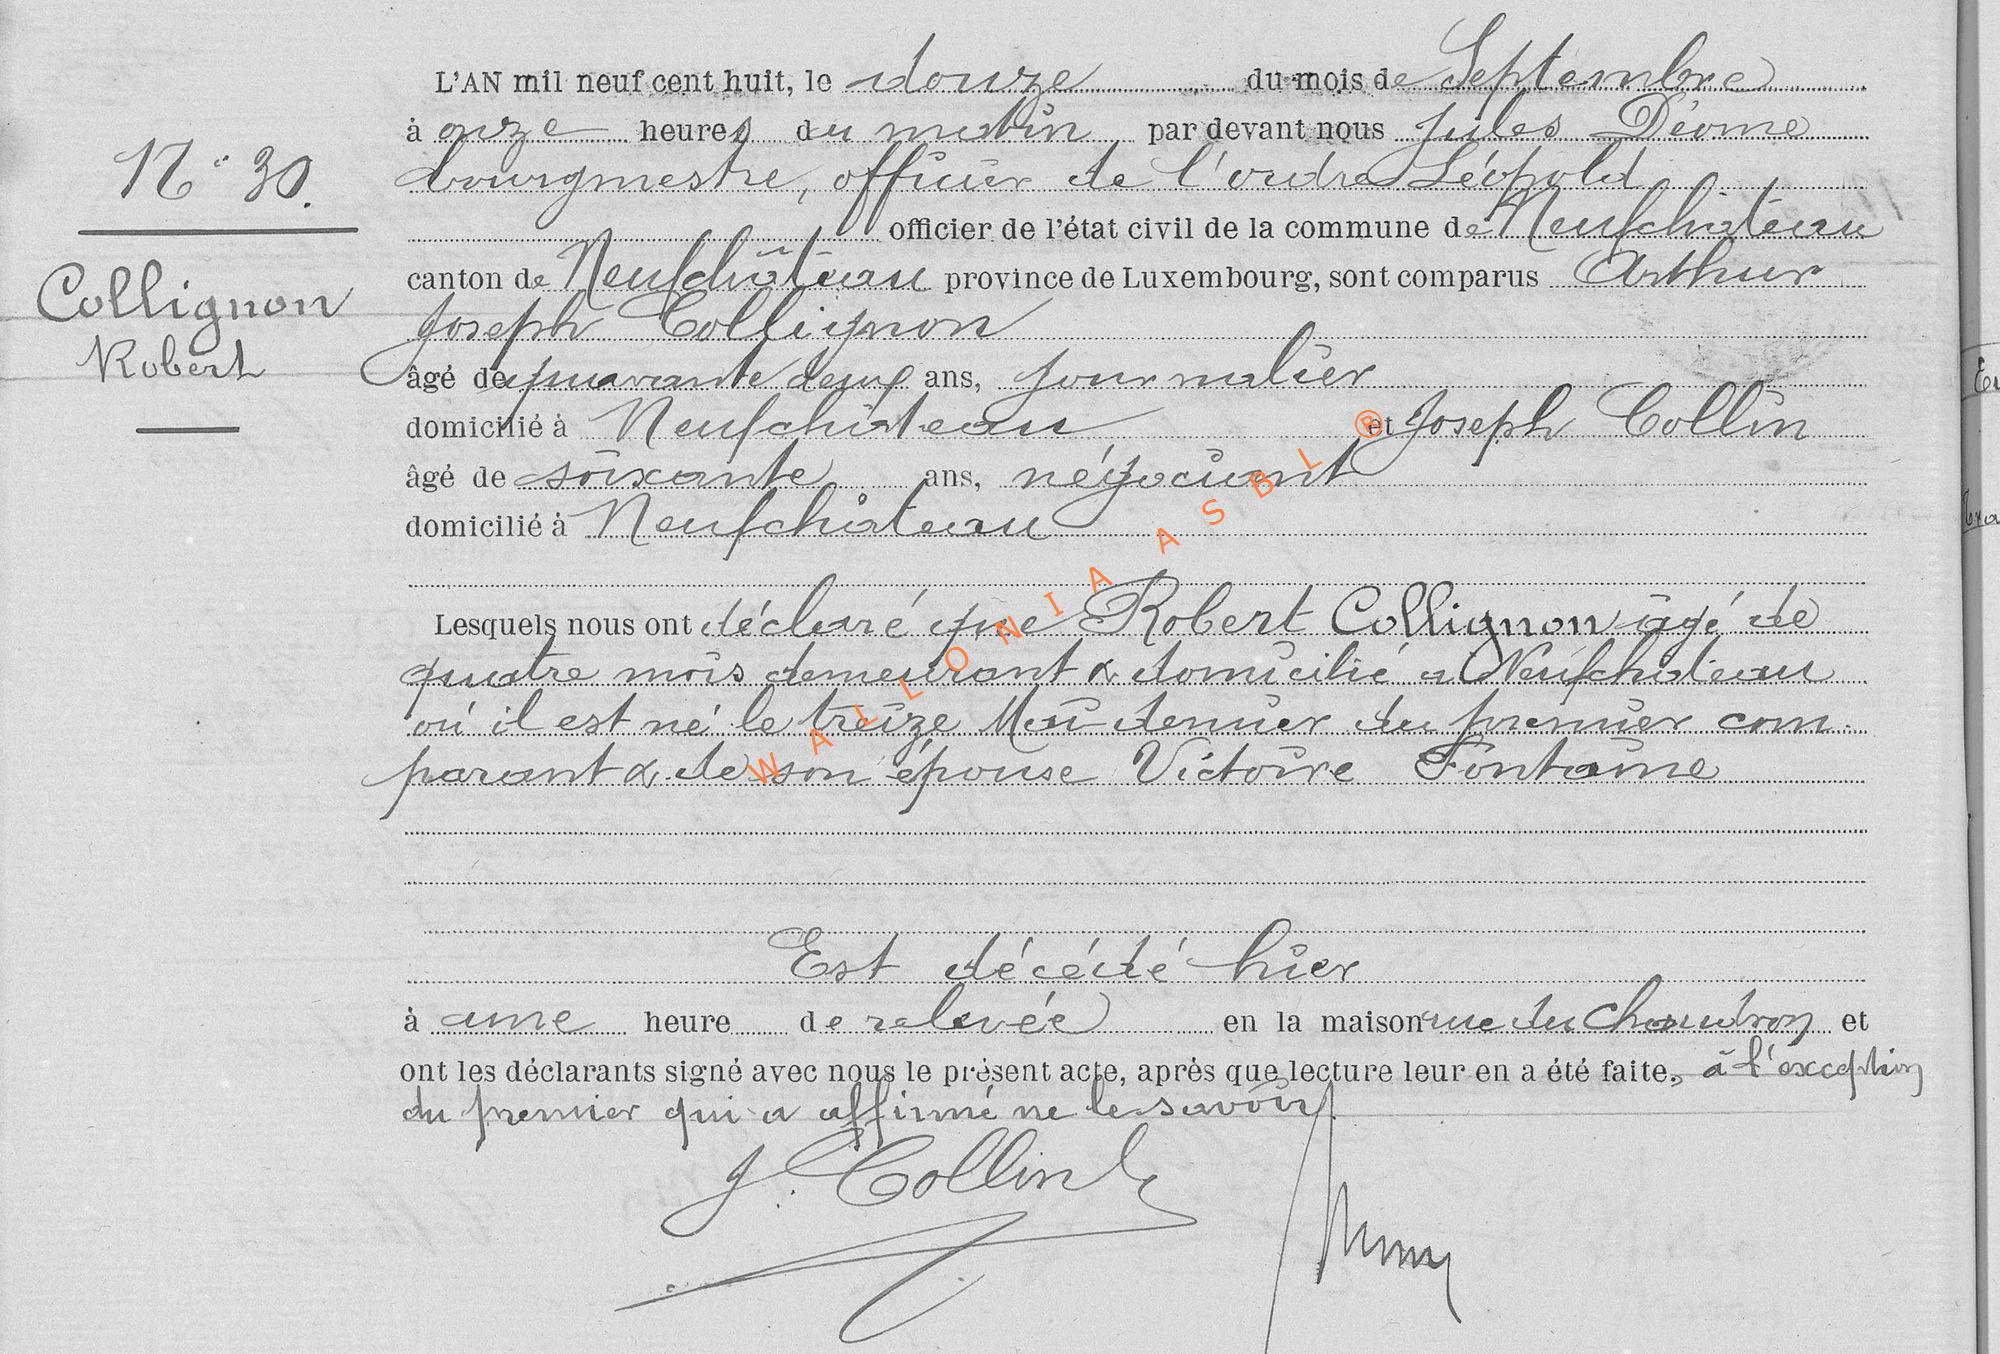 L'AN mil neuf cent huit, le douze du mois de Septembre
à onze heures du matin par devant nous Jules Déome
bourgmestre, officier de l'ordre Léopold
officier de l'état civil de la commune de Neufchâteau
canton de Neufchâteau province de Luxembourg, sont comparus Arthur
Joseph Collignon
âgé de quarante deux ans, journalier
domicilié à Neufchâteau et Joseph Collin
âgé de soixante ans, négociant
domicilié à Neufchâteau
Lesquels nous ont déclaré que Robert Collignon âgé de
quatre mois demeurant & domicilié à Neufchâteau
où il est né le treize Mai dernier du premier com-
parant & de son épouse Victoire Fontaine
Est décédé hier
à une heure de relevée en la maison rue du Chaudron et
ont les déclarants signé avec nous le présent acte, après que lecture leur en a été faite, à l'exception
du premier qui a affirmé ne le savoir.
J. Collin
N° 30.
Collignon
Robert
WALLONIA ASBL ®